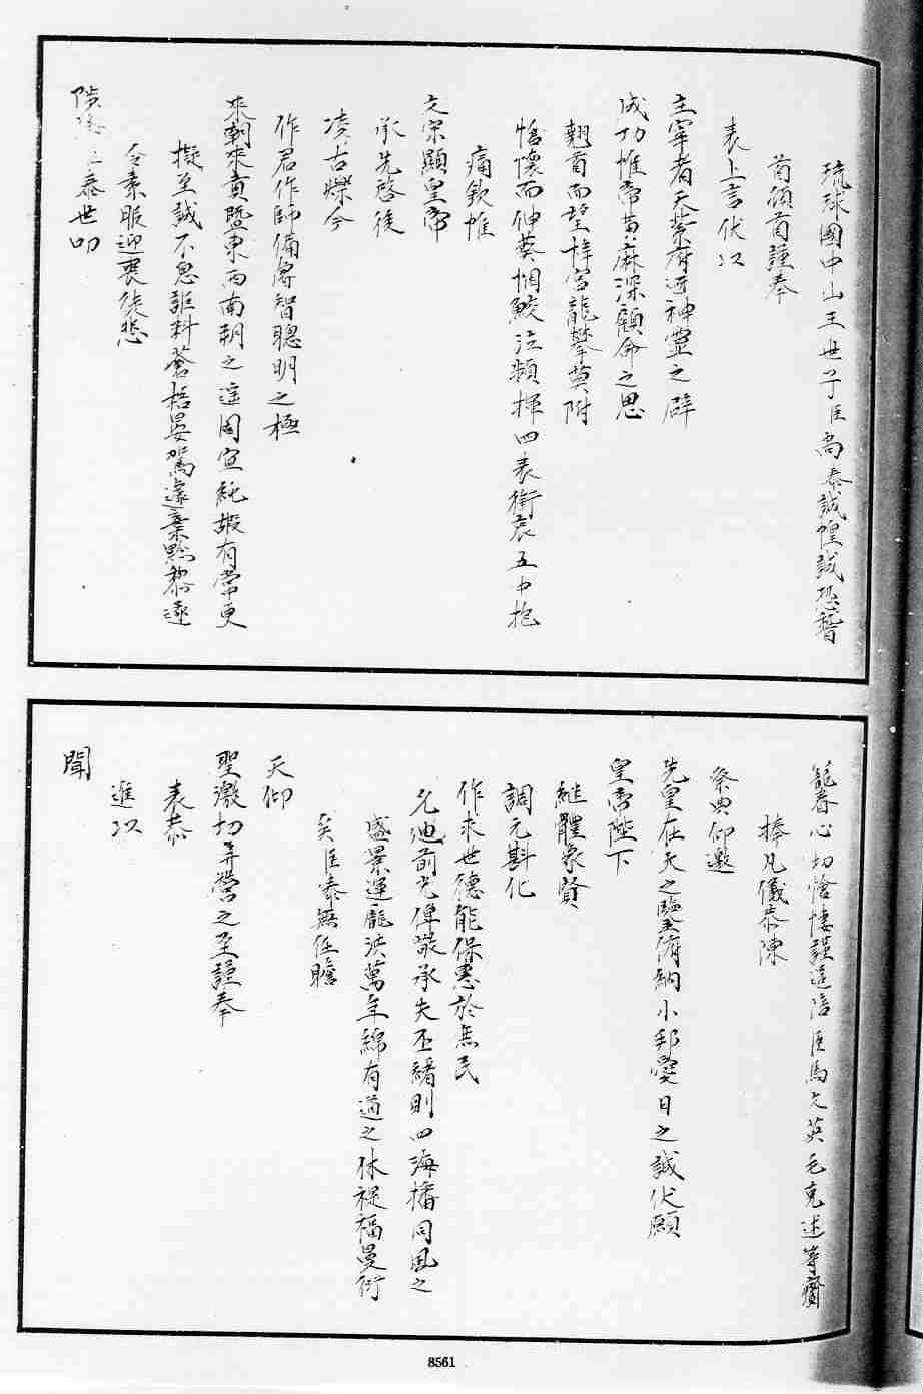 琉球國中山王世子臣尚泰誠惶誠恐稽
首頓首謹奉
表上言伏以
主宰者天紫府迓神靈之辟
成功惟帝黃麻深顧命之思
翹首而望悵龍攀莫附
愴懷而伸葵悃鮫泣頻揮四表銜哀五中抱
痛欽惟
文宗顯皇帝
承先啓後
凌古爍今
作君作師備睿智聰明之極
來朝來貢暨東西南朔之遙周宣純嘏有常更
擬至誠不息詎料蒼梧晏駕遽棄黔黎遠
陟 泰世叨
令素服迎喪徒悲
籠眷心切愴悽謹遣陪臣馬文英毛克述等齎
捧凡儀恭陳
祭典仰邀
先皇在天之鑒俯納小邦愛日之誠伏願
皇帝陛下
繼體象賢
調元斟化
作求世德能保惠於無民
允迪前光俾敬承夫丕緒則四海播同風之
盛景運龐洪萬年綿有道之休禔福曼衍
矣臣泰無任瞻
天仰
聖激切屏營之至謹奉
表恭
進以
聞
8561